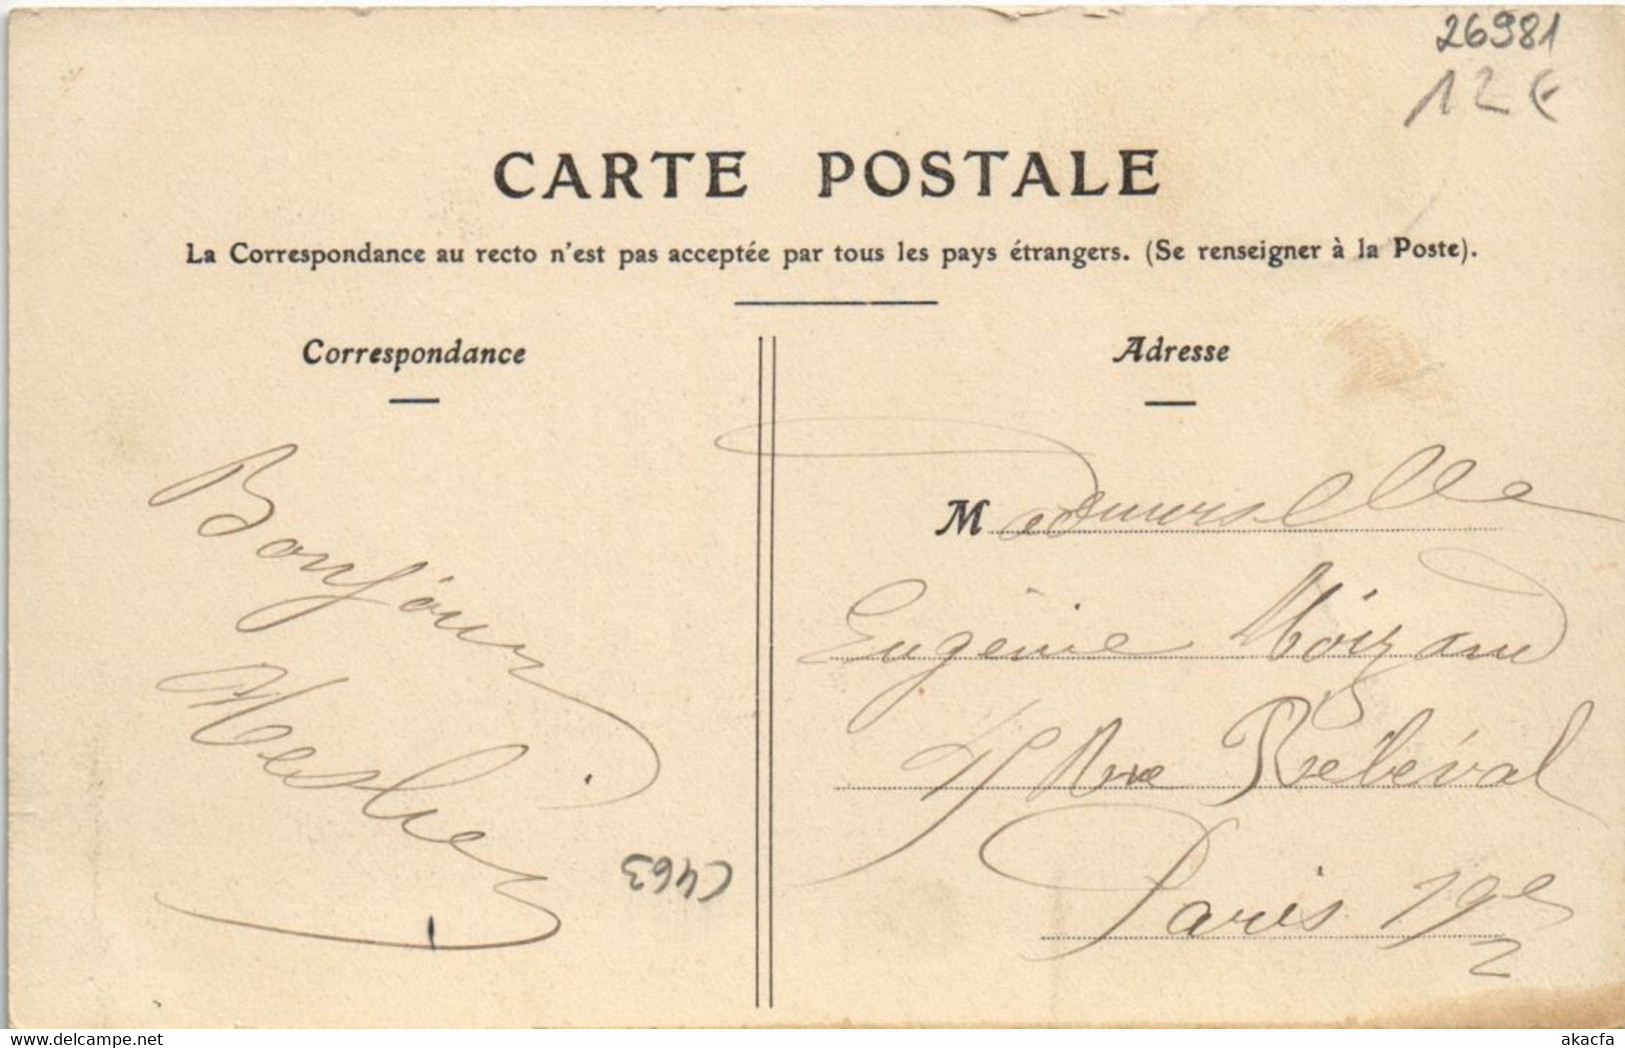 26981
12 €
CARTE POSTALE
La Correspondance au recto n'est pas acceptée par tous les pays étrangers. (Se renseigner à la Poste).
Correspondance
Bonjour
C463
Adresse
Mademoiselle
Eugénie
Rue Rébéval
Paris 19e
akacfa